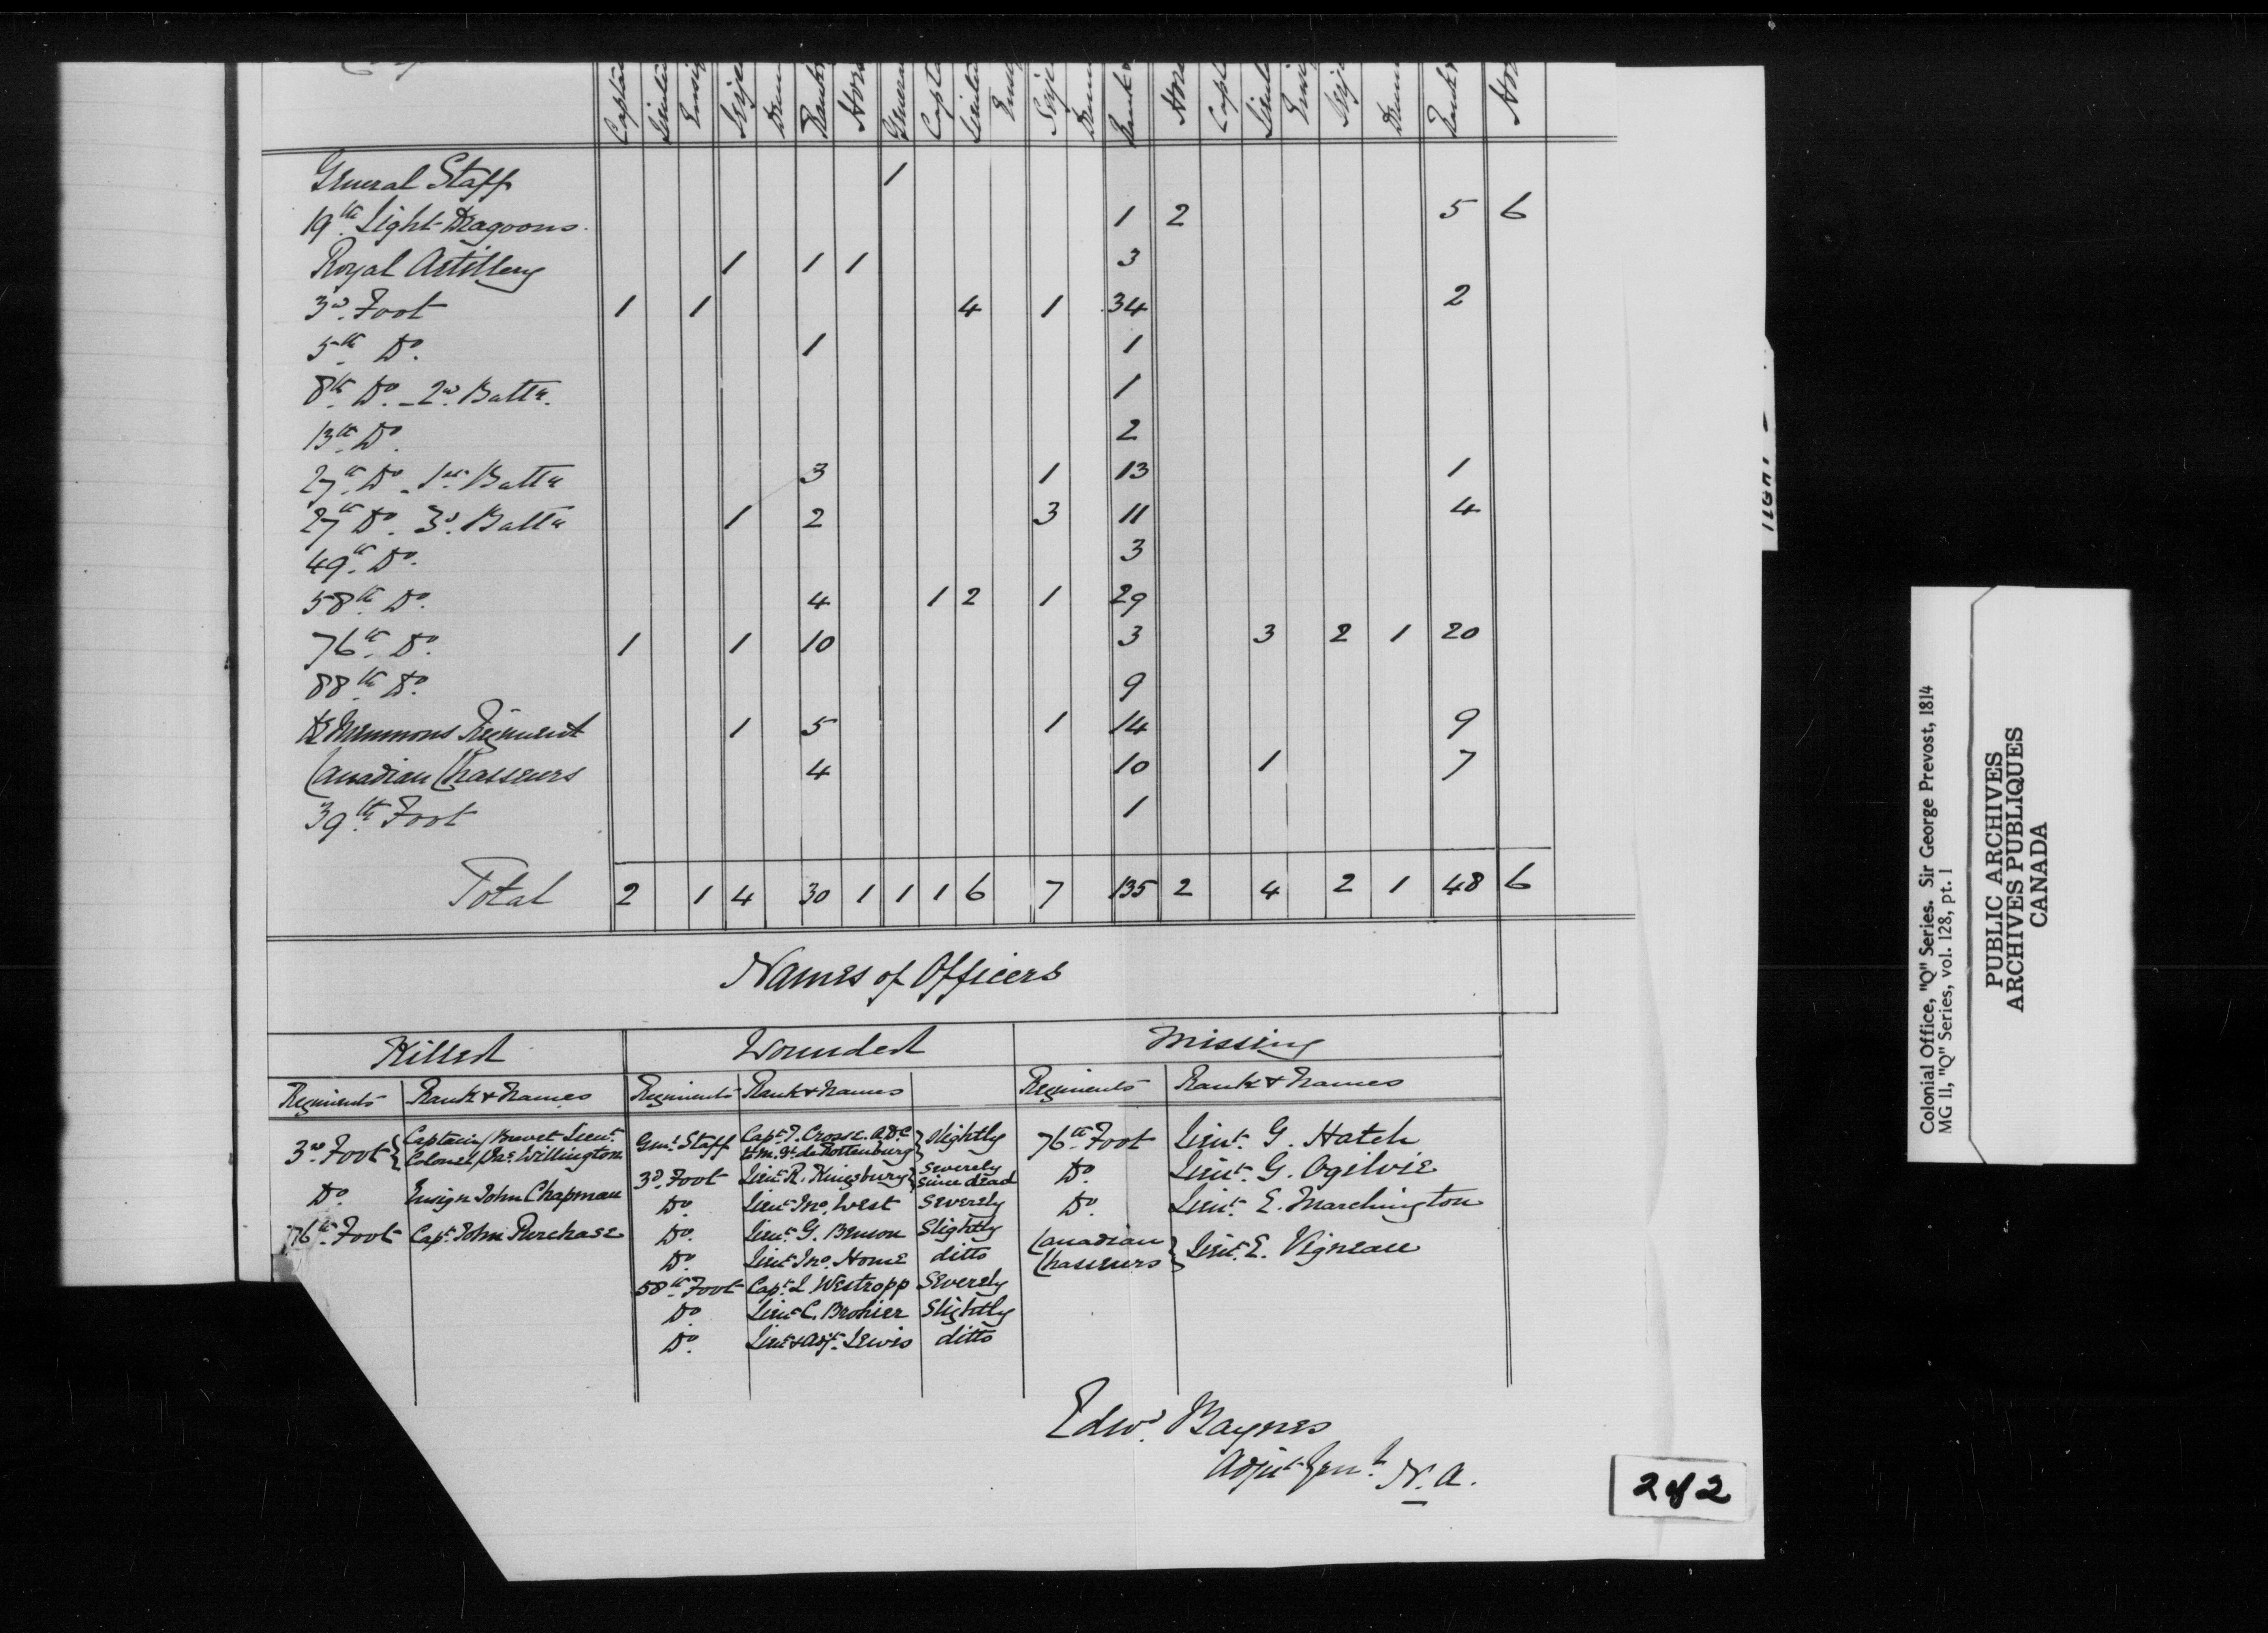 General Staff 1
19th Light Dragoons. 1 2 5 6
Royal Artillery 1 1 1 3
3d. Foot 1 1 4 1 34 2
5th Do. 1 1
8th Do. - 2d. Battn. 1
13th Do. 2
27th Do. - 1st Battn 3 1 13 1
27th Do. 3d. Battn 1 2 3 11 4
49th Do. 3
58th Do. 4 1 2 1 29
76th Do. 1 1 10 3 3 2 1 20
88th Do. 9
Memmons Regiment 1 5 1 14 9
Canadian Chasseurs 4 10 1 7
39th Foot 1
Total 2 1 4 30 1 1 1 6 7 135 2 4 2 1 48 6
Names of Officers
Killed Wounded Missing
Regiments Rank & Names Regiments Rank & Names Regiments Rank & Names
3rd Foot { Captain / Brevet Lieut.
Colonel / Jas. Willington
Do. Ensign John Chapman
76th Foot Capt. John Purchase
Genl. Staff Capt. T. Crosse. A.D.C
de Rottenburg } Slightly
3d. Foot Lieut. R. Kingsbury { Severely
since dead
Do. Lieut. Jno. West Severely
Do. Lieut. G. Benson Slightly
Do. Lieut. Jno. Home ditto
58th Foot Capt. L Westropp Severely
Do. Lieut. C. Brohier Slightly
Do. Lieut. & Adjt. Lewis ditto
76th Foot Lieut. G. Hatch
Do. Lieut. G. Ogilvie
Do. Lieut. E. Marchington
Canadian
Chasseurs } Lieut. E. Vigneau
Edwd. Baynes
Adjut. Genl. N. A.
2 of 2
Colonial Office, "Q" Series. Sir George Prevost, 1814
MG 11, "Q" Series, vol. 128, pt. 1
PUBLIC ARCHIVES
ARCHIVES PUBLIQUES
CANADA